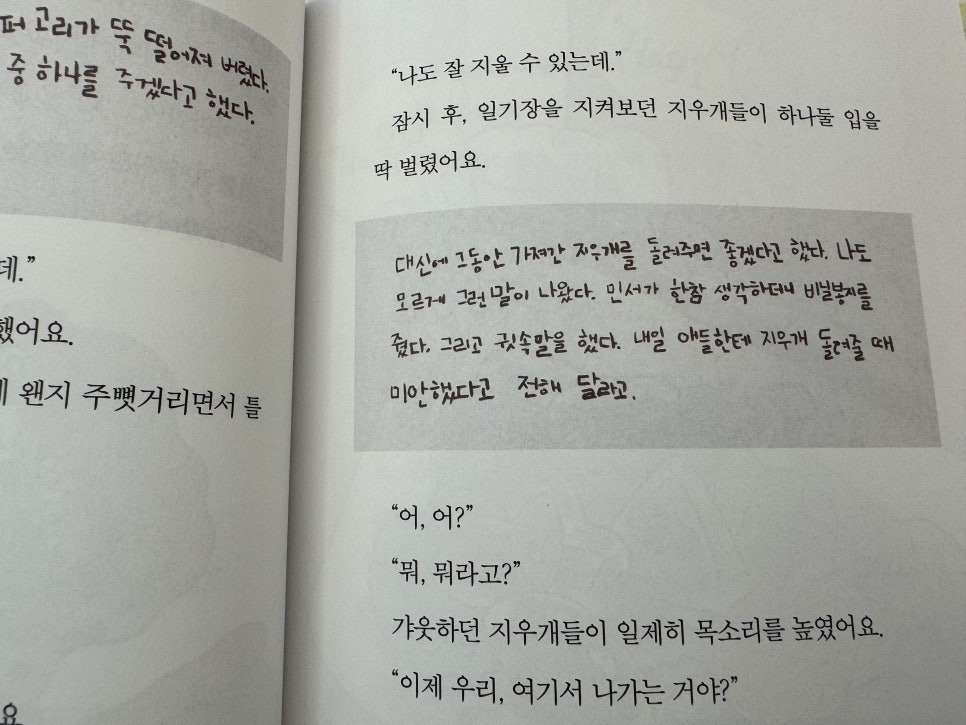 퍼 고리가 뚝 떨어져 버렸다.
중 하나를 주겠다고 했다.
데.”
했어요.
왠지 주뼛거리면서 틀
요
“나도 잘 지울 수 있는데.”
잠시 후, 일기장을 지켜보던 지우개들이 하나둘 입을
딱 벌렸어요.
대신에 그동안 가져간 지우개를 돌려주면 좋겠다고 했다. 나도
모르게 그런 말이 나왔다. 민서가 한참 생각하더니 비닐봉지를
줬다. 그리고 귓속말을 했다. 내일 애들한테 지우개 돌려줄 때
미안했다고 전해 달라고.
“어, 어?”
“뭐, 뭐라고?”
갸웃하던 지우개들이 일제히 목소리를 높였어요.
“이제 우리, 여기서 나가는 거야?”